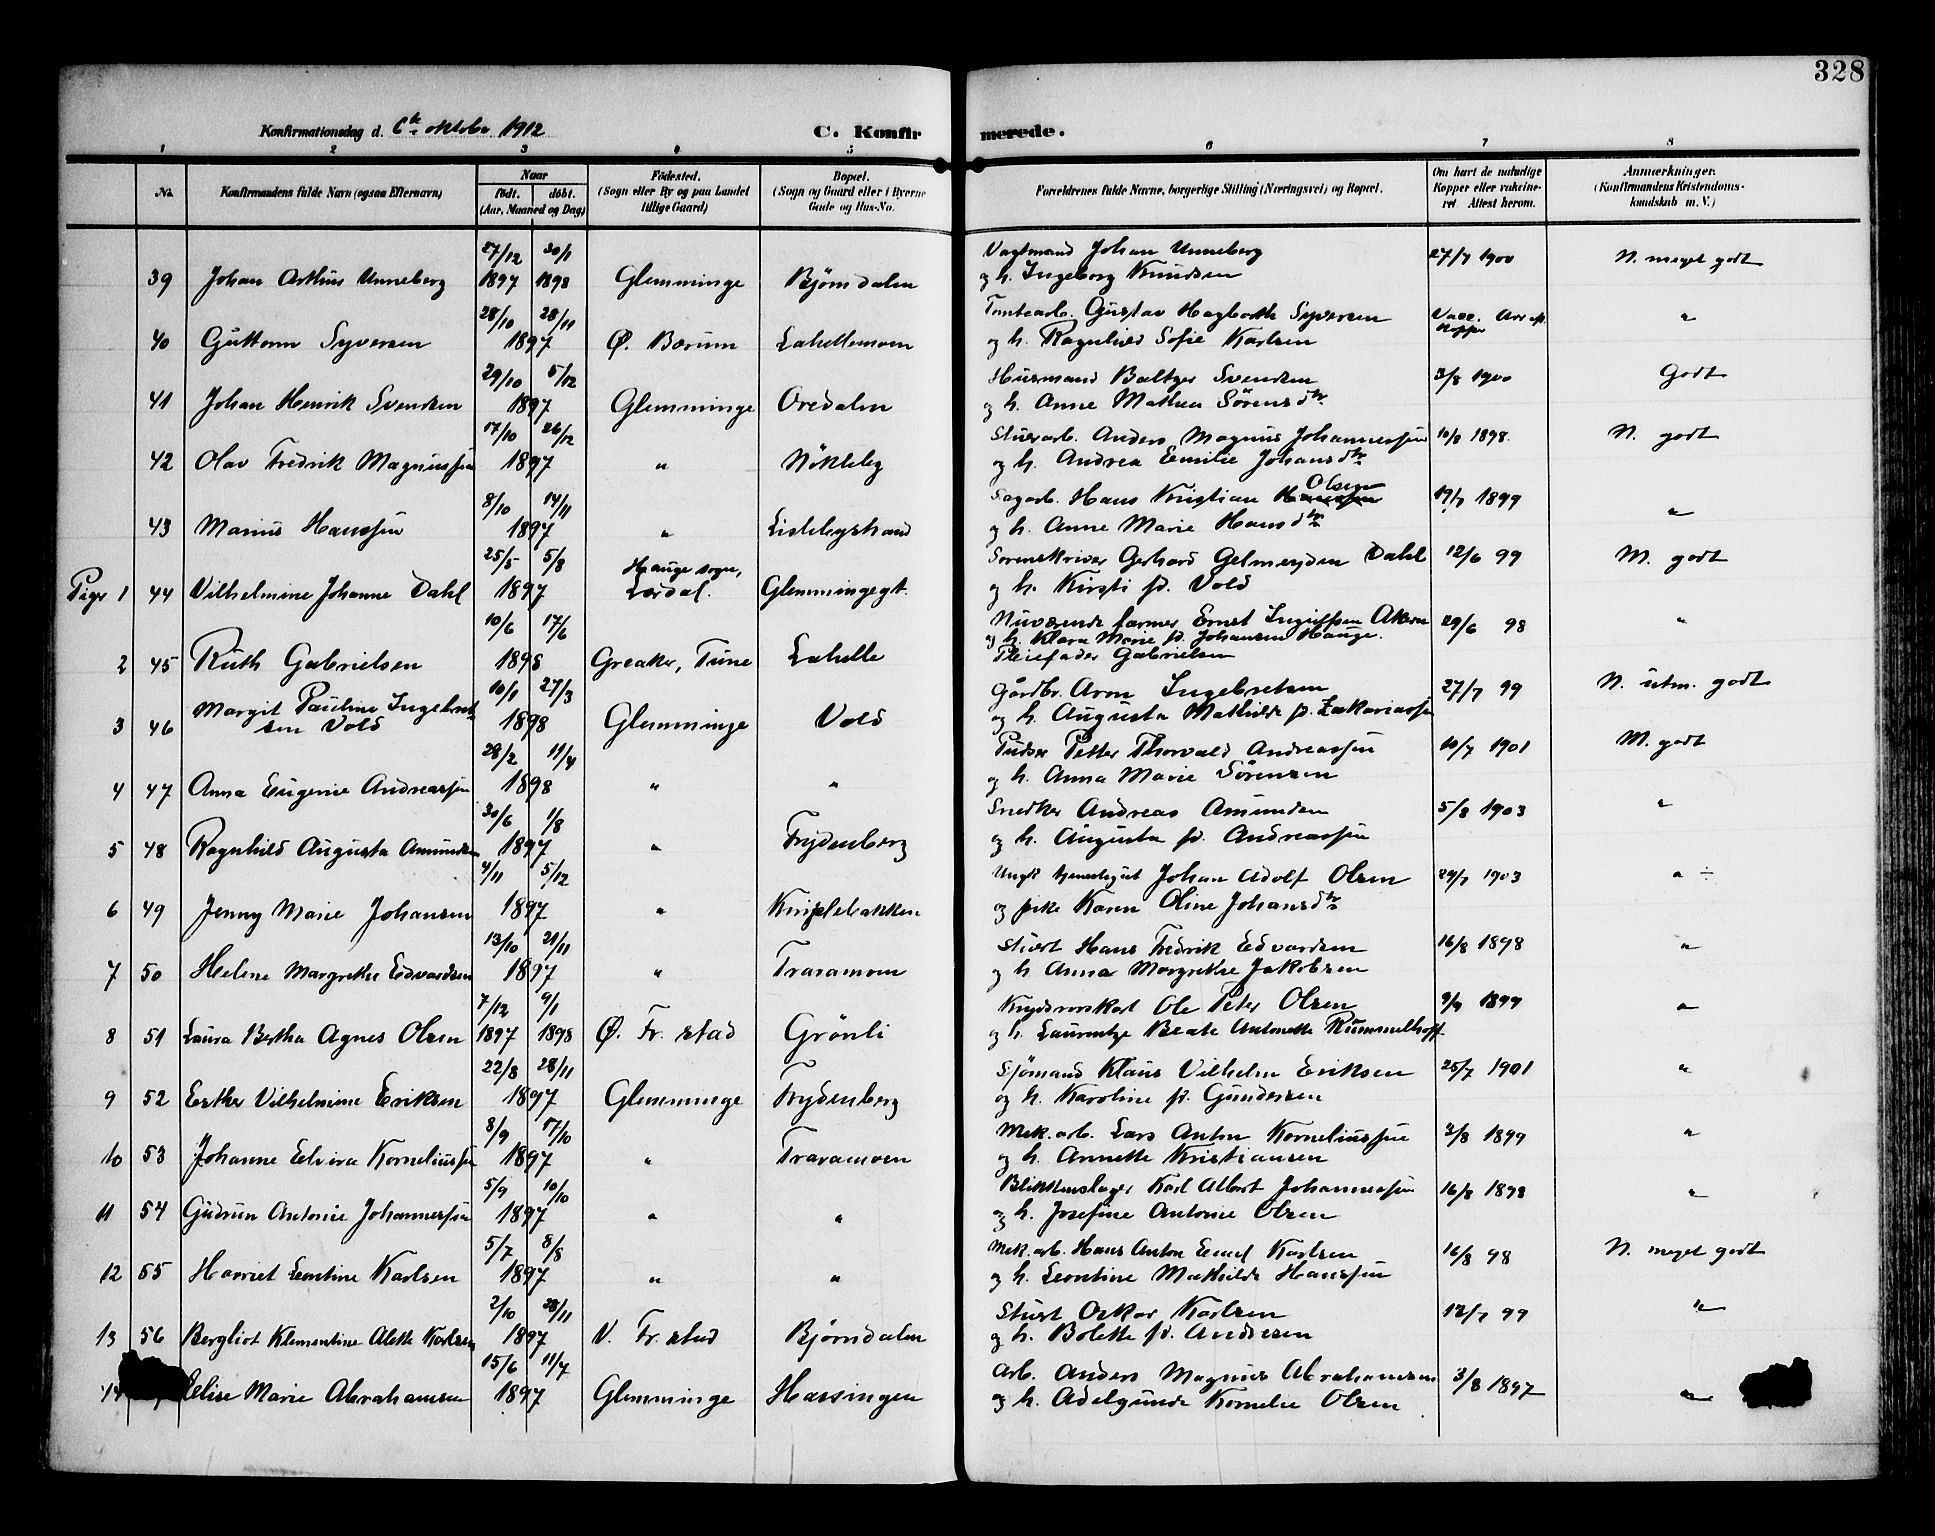 328
Konfirmationsdag d. 6te oktober 1912 C. Konfirmerede.
1 2 3 4 5 6 7 8
No. Konfirmandens fulde Navn (ogsaa Efternavn) Naar født. døbt. (Aar, Maaned og Dag) Fødested. (Sogn eller By og paa Landet tillige Gaard) Bopæl. (Sogn og Gaard eller i Byerne Gade og Hus-No. Forældrenes fulde Navne, borgerlige Stilling (Næringsvei) og Bopæl. Om havt de naturlige Kopper eller vakcineret. Attest herom. Anmerkninger. (Konfirmandens Kristendomskundskab m. V.)
39 Johan Arthur Unneberg 27/12 1897 30/1 1898 Glemminge Bjørndalen Vagtmand Johan Unneberg
og h. Ingeborg Knudsen 27/7 1900 N. meget godt
40 Guttorm Syversen 28/10 28/11 1897 Ø. Bærum Lahellemoen Tomtearb. Gustav Hagbarth Syversen
og h. Ragnhild Sofie Karlsen Vacc. Kopper "
41 Johan Henrik Svendsen 29/10 5/12 1897 Glemminge Oredalen Husmand Baltzer Svendsen
og h. Anne Mathea Sørensdtr 3/8 1900 Godt
42 Olav Fredrik Magnussen 17/10 26/12 1897 " Nökleby Stuerarb. Anders Magnus Johannessen
og h. Andrea Emilie Johansdtr 10/8 1898. N. godt
43 Marius Hanssen 8/10 14/11 1897 " Lislebystrand Sagarb. Hans Kristian Hanssen Olsen
og h. Anne Marie Hansdtr 19/7 1899 "
Piger 1 44 Vilhelmine Johanne Dahl 25/5 5/8 1897 Hauge sogn, Lærdal. Glemmingegt. Sorenskriver Gerhard Gelmeyden Dahl
og h. Kirsti f. Vold 12/6 99 M. godt
2 45 Ruth Gabrielsen 10/6 17/6 1898 Greaker, Tune Lahelle Nuværende farmer Ernst Akern
og h. Klara Marie f. Johansen Hauge.
Pleiefader Gabrielsen 29/6 98 "
3 46 Margit Pauline Ingebretsen Vold 10/1 27/3 1898 Glemminge Vold Gårdbr. Aron Ingebretsen
og h. Augusta Mathilde f. Zakariassen 27/7 99 N. utm. godt
4 47 Anna Eugenie Andreassen 28/2 11/4 1898 " " Pudser Petter Thorvald Andreassen
og h. Anna Marie Sörensen 10/7 1901 M. godt
5 48 Ragnhild Augusta Amundsen 30/6 1/8 1897 " Frydenberg Snedker Andreas Amundsen
og h. Augusta f. Andreassen 5/8 1903 "
6 49 Jenny Marie Johansen 4/11 5/12 1897 " Kniplebakken Ungk. tjenestegut Johan Adolf Olsen
og pike Karen Oline Johansdtr 29/7 1903 " ÷
7 50 Helene Margrethe Edvardsen 13/10 21/11 1897 " Traramoen Stuert Hans Fredrik Edvardsen
og h Anna Margrethe Jakobsen 16/8 1898 "
8 51 Laura Bertha Agnes Olsen 7/12 1897 9/1 1898 Ø. Fr. stad Grönli Krydsrorskar Ole Peter Olsen
og h. Laurentze Beate Antonette Rummelhoff 9/9 1899 "
9 52 Esther Vilhelmine Eriksen 22/8 28/11 1897 Glemminge Frydenberg Sjømand Klaus Vilhelm Eriksen
og h. Karoline f. Gundersen 25/7 1901 "
10 53 Johanne Elvira Korneliussen 8/9 17/10 1897 " Traramoen Mek. arb. Lars Anton Korneliussen
og h. Annette Kristiansen 3/8 1899 "
11 54 Gudrun Antonie Johannessen 5/9 10/10 1897 " " Blikkenslager Karl Albert Johannessen
og h. Josefine Antonie Olsen 16/8 1898 "
12 55 Harriet Leontine Karlsen 5/7 8/8 1897 " " Mek. arb. Hans Anton Emil Karlsen
og h. Leontine Mathilde Hanssen 16/8 98 N. meget godt
13 56 Bergliot Klementine Alette Karlsen 2/10 28/11 1897 V. Fr. stad Bjørndalen Stuert Oskar Karlsen
og h. Bolette f. Andersen 12/7 99 "
14 Elise Marie Abrahamsen 15/6 11/7 1897 Glemminge Hassingen Arb. Anders Magnus Abrahamsen
og h. Adelgunde Kornelie Olsen 3/8 1897 "